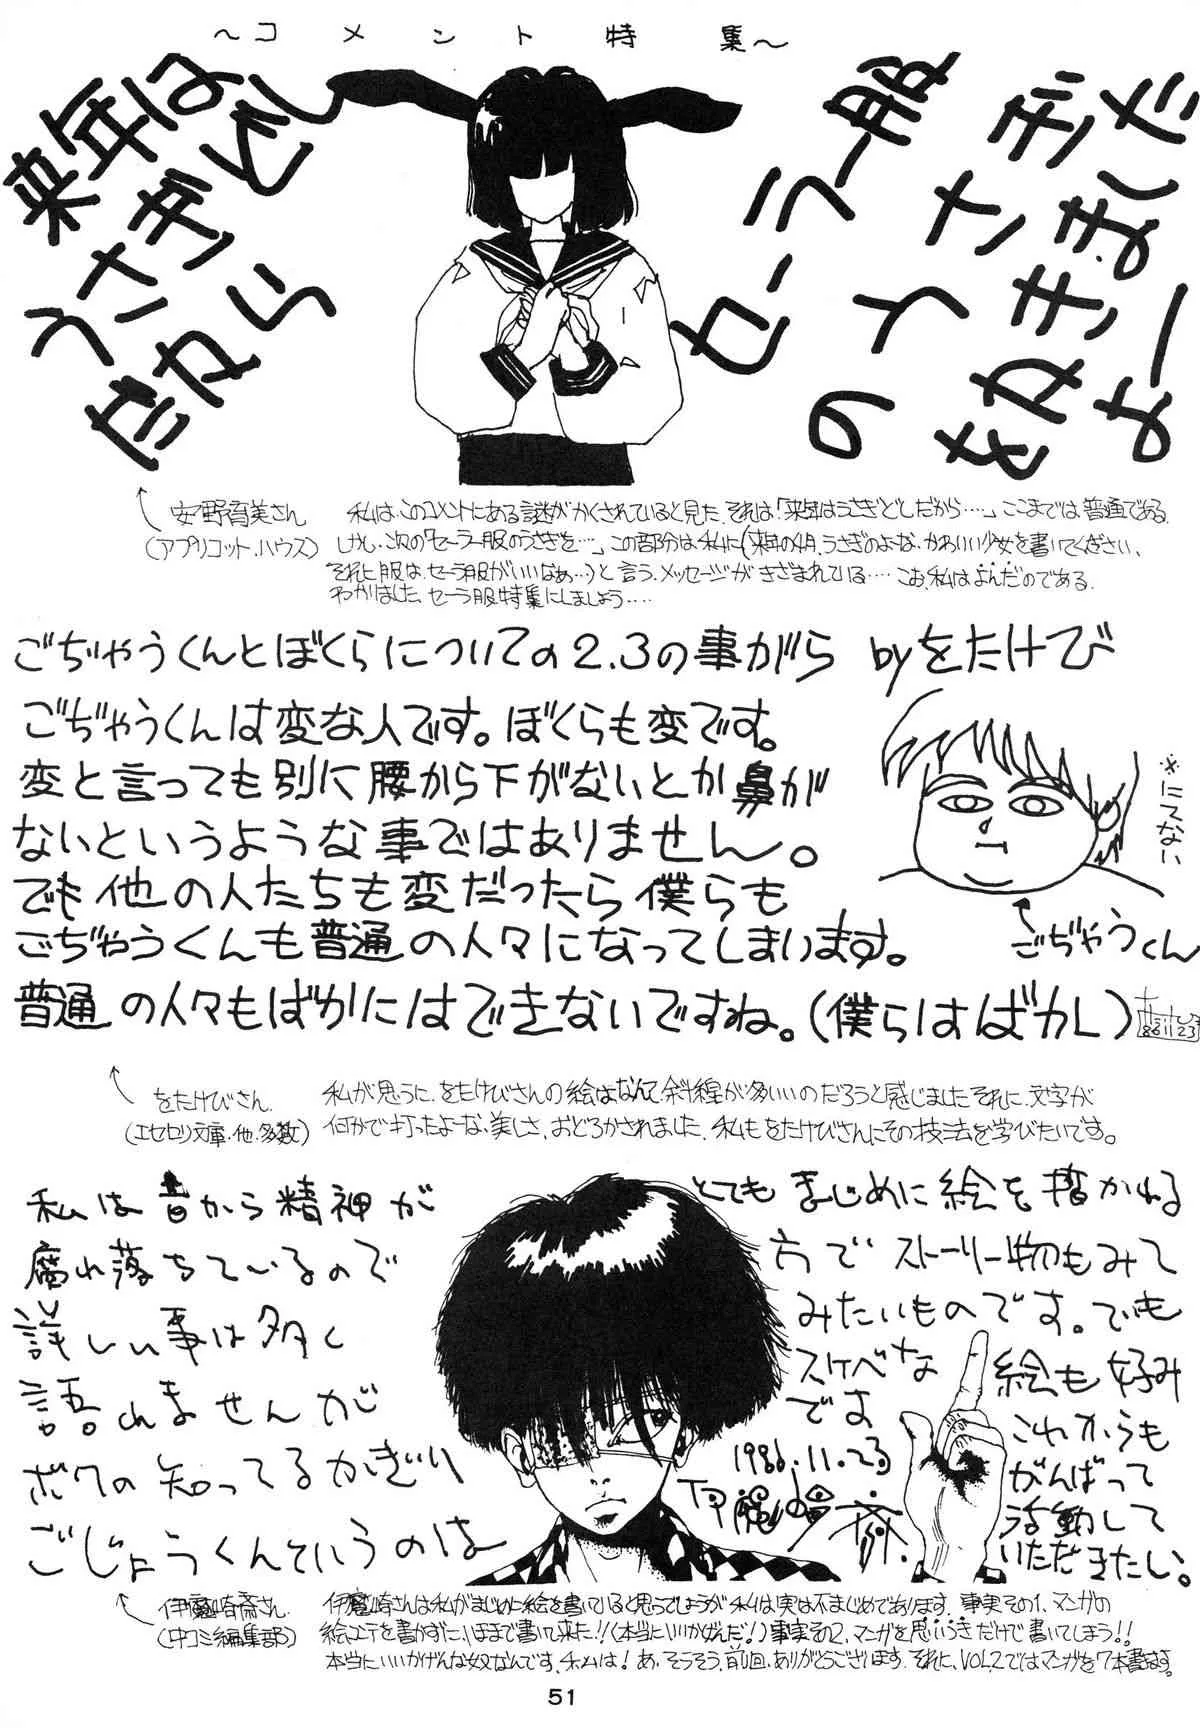 ～コメント特集～
来年は
うさぎどし
だから
セーラー服
のうさ
ぎを
かきま
しただ
よー
安野育美さん
(アプリコット.ハウス)
私は、このコメントにある謎がかくされていると見た。それは「来年はうさぎどしだから….」ここまでは普通である。
しかし、次の「セーラー服のうさぎを…」この部分は私に(来年の4月、うさぎのよーな、かわいい少女を書いてください、
それに服は、セーラ服がいいなぁ…)と言う、メッセージがきざまれている….こお、私はよんだのである。
わかりました、セーラ服特集にしましょう….
ごぢゃうくんとぼくらについての2.3の事がら byをたけび
ごぢゃうくんは変な人です。ぼくらも変です。
変と言っても別に腰から下がないとか鼻が
ないというような事ではありません。
でも他の人たちも変だったら僕らも
ごぢゃうくんも普通の人々になってしまいます。
普通の人々もばかにはできないですね。(僕らはばかし)
※にてない
ごぢゃうくん
86 11 23
をたけびさん
(エセセリ文庫.他.多数)
私が思うに、をたけびさんの絵はなんて、斜線が多いいのだろうと感じました。それに、文字が
何かで打ったよーな、美しさ、おどろかされました。私もをたけびさんにその技法を学びたいです。
私は昔から精神が
腐れ落ちているので
詳しい事は多く
語れませんが
ボクの知ってるかぎり
ごじょうくんていうのは
とてもまじめに絵を描かれる
方でストーリー物もみて
みたいものです。でも
スケベな絵も好み
です
これからも
がんばって
活動して
いただきたい。
1986.11.23
伊魔崎斎.
伊魔崎斎さん
(中コミ編集部)
伊魔崎さんは私がまじめに絵を書いていると思うでしょうが私は実は不まじめであります。事実その1、マンガの
絵コンテを書かずに、ほまで書いて来た!!(本当にいいかげんだ!)事実その2、マンガを思いつきだけで書いてしまう!!
本当にいいかげんな奴なんです、私は!あ、そうそう、前回、ありがとうございます。それに、VOL.2ではマンガを7本書きます。
51